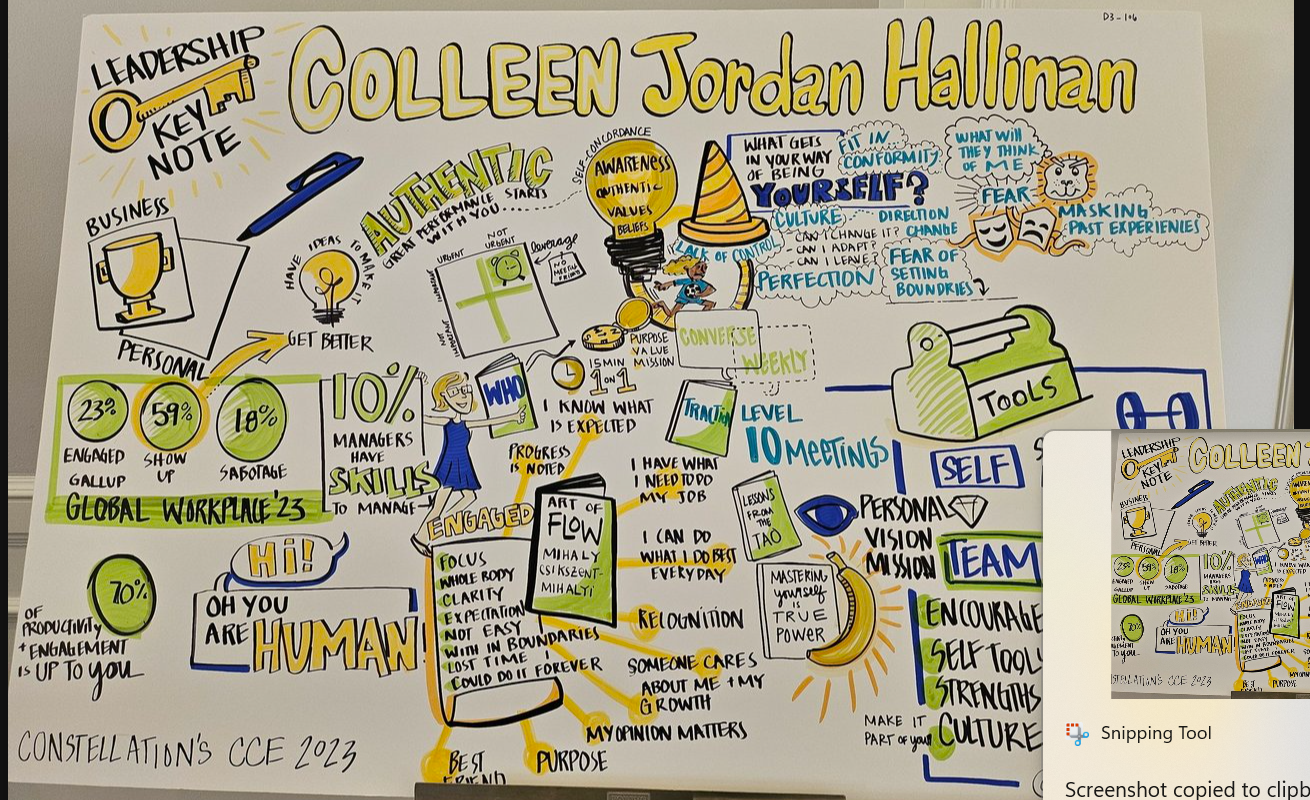 D3-1+6
LEADERSHIP
KEY
NOTE
COLLEEN Jordan Hallinan
BUSINESS
PERSONAL
HAVE IDEAS TO MAKE IT
GET BETTER
AUTHENTIC
GREAT PERFORMANCE STARTS
WITH YOU
SELF-CONCORDANCE
AWARENESS
AUTHENTIC
VALUES
BELIEFS
WHAT GETS
IN YOUR WAY
OF BEING
YOURSELF?
FIT IN
CONFORMITY
WHAT WILL
THEY THINK
OF ME
FEAR
MASKING
PAST EXPERIENIES
CULTURE
DIRECTION
CHANGE
CAN I CHANGE IT?
CAN I ADAPT?
CAN I LEAVE?
LACK OF CONTROL
PERFECTION
FEAR OF
SETTING
BOUNDRIES
URGENT
NOT
URGENT
IMPORTANT
NOT
IMPORTANT
leverage
NO
MEETING
FRIDAY
PURPOSE
VALUE
MISSION
15 MIN
1 ON 1
CONVERSE
WEEKLY
TRACTION
LEVEL
10 MEETINGS
TOOLS
23%
ENGAGED
GALLUP
59%
SHOW
UP
18%
SABOTAGE
GLOBAL WORKPLACE '23
10%
MANAGERS
HAVE
SKILLS
TO MANAGE
WHO
I KNOW WHAT
IS EXPECTED
PROGRESS
IS NOTED
I HAVE WHAT
I NEED TO DO
MY JOB
I CAN DO
WHAT I DO BEST
EVERY DAY
RECOGNITION
SOMEONE CARES
ABOUT ME + MY
GROWTH
MY OPINION MATTERS
PURPOSE
BEST
FRIEND
ENGAGED
FOCUS
WHOLE BODY
CLARITY
EXPECTATION
NOT EASY
WITH IN BOUNDARIES
LOST TIME
COULD DO IT FOREVER
ART OF
FLOW
MIHALY
CSIKSZENT-
MIHALYI
70%
OF
PRODUCTIVITY
+ ENGAGEMENT
IS UP TO you
Hi!
OH YOU
ARE HUMAN
LESSONS
FROM
THE
TAO
MASTERING
yourself
IS
TRUE
POWER
SELF
PERSONAL
VISION
MISSION
TEAM
ENCOURAGE
SELF TOOL
STRENGTHS
CULTURE
MAKE IT
PART OF your
CONSTELLATION'S CCE 2023
Snipping Tool
Screenshot copied to clipb